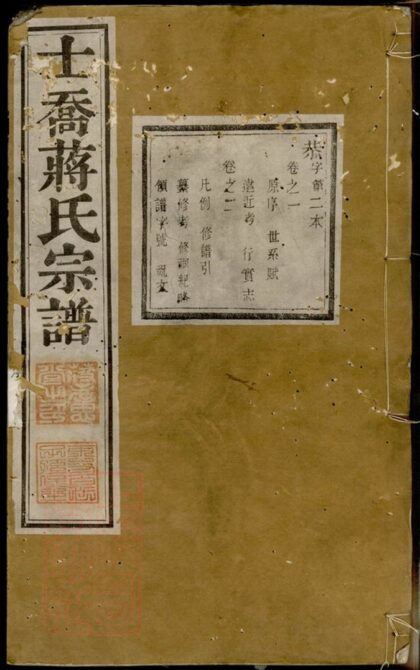 士喬蔣氏宗譜
恭字第二本
卷之一
原序 世系賦
遠近考 行實志
卷之二
凡例 修譜引
纂修考 修譜紀略
領譜字號 祝文